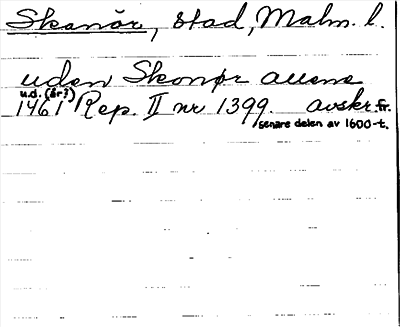 Skanör, stad, Malm. l.
uden Skonør auene
u.d. (år?)
1461 Rep. II nr 1399. avskr. fr.
senare delen av 1600-t.